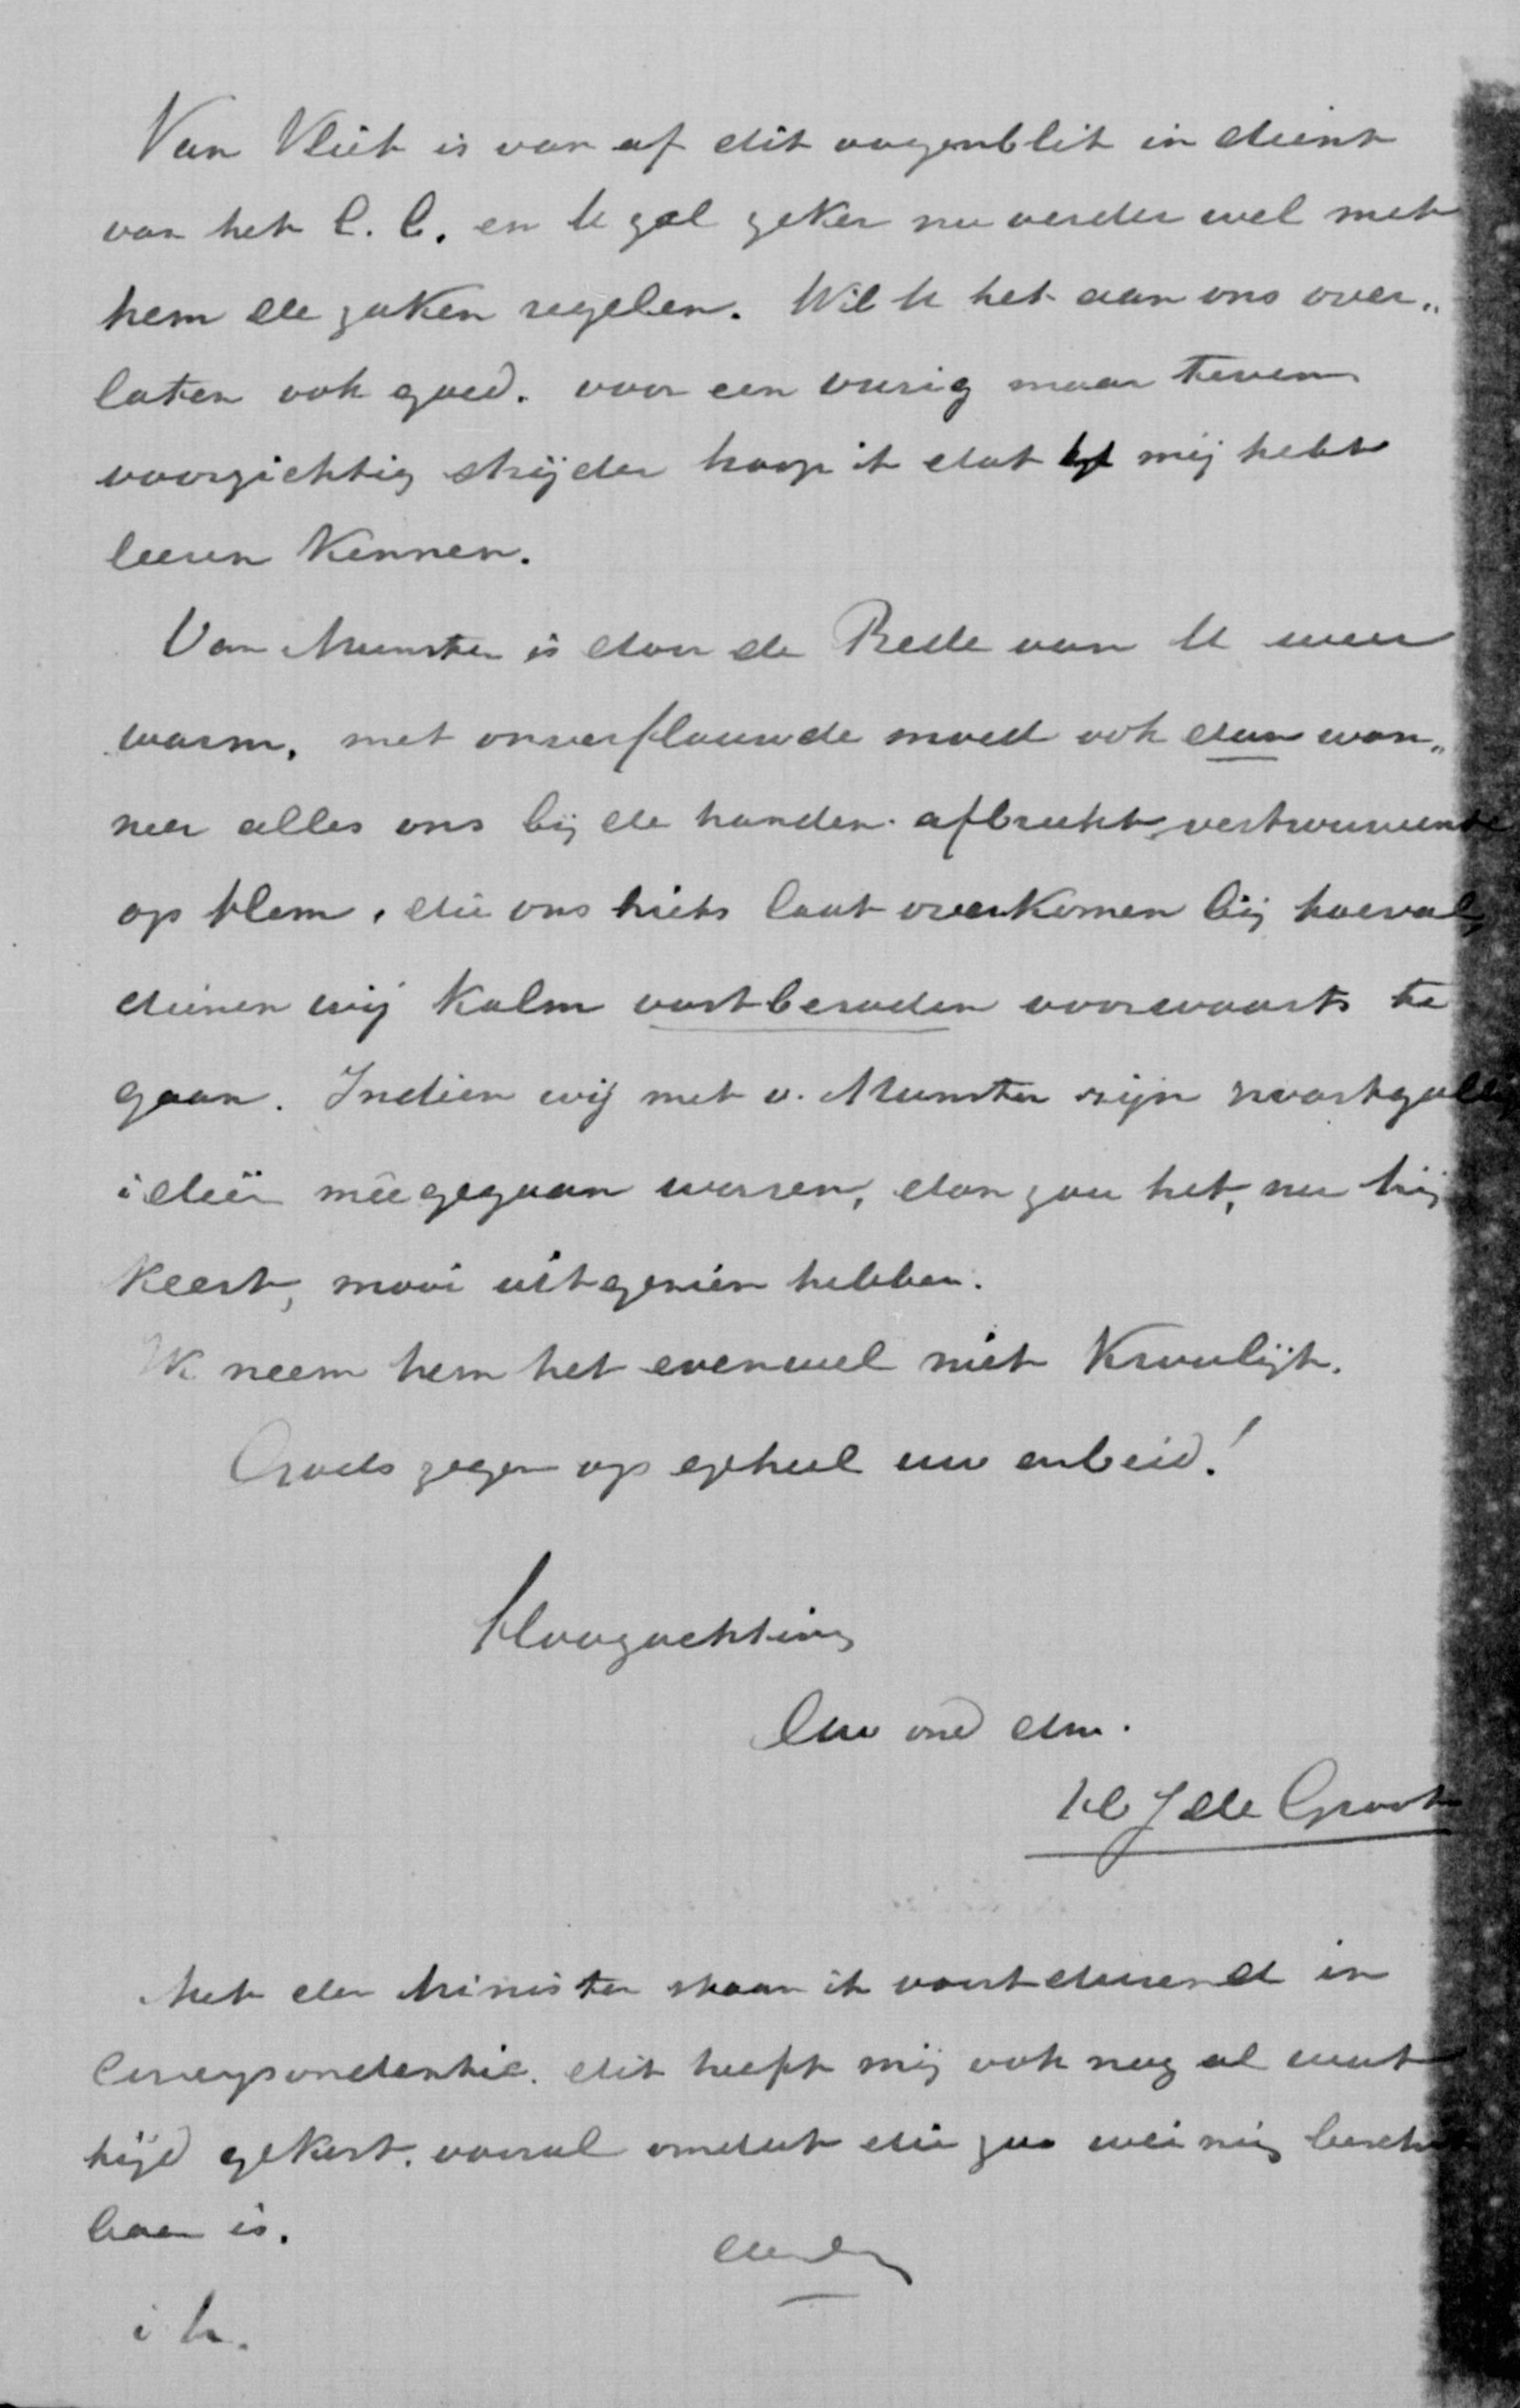 Van Vliet is van af dit oogenblik in dienst
van het C. C. en U zal zeker nu verder wel met
hem de zaken regelen. Wil U het aan ons over„
laten ook goed. voor een vurig maar tevens
voorzichtig strijder hoop ik dat U mij hebt
leeren kennen.
Van Munster is door de Rede van U weer
warm. met onverflauwde moed ook dan wan„
neer alles ons bij de handen afbreekt, vertrouwende
op Hem, die ons niets laat overkomen bij toeval,
dienen wij kalm vastberaden voorwaarts te
gaan. Indien wij met v. Munster zijn zwartgallig
ideën meegegaan waren, dan zou het, nu hij
keert, mooi uitgezien hebben.
Ik neem hem het evenwel niet kwalijk.
Gods zegen op geheel uw arbeid!
Hoogachting
Uw ond dw.
H J de Groot
Met den Minister staan ik voortdurend in
Correspondentie. dit heeft mij ook nog al wat
tijd gekost. vooral omdat die zoo weinig beschik
baar is.